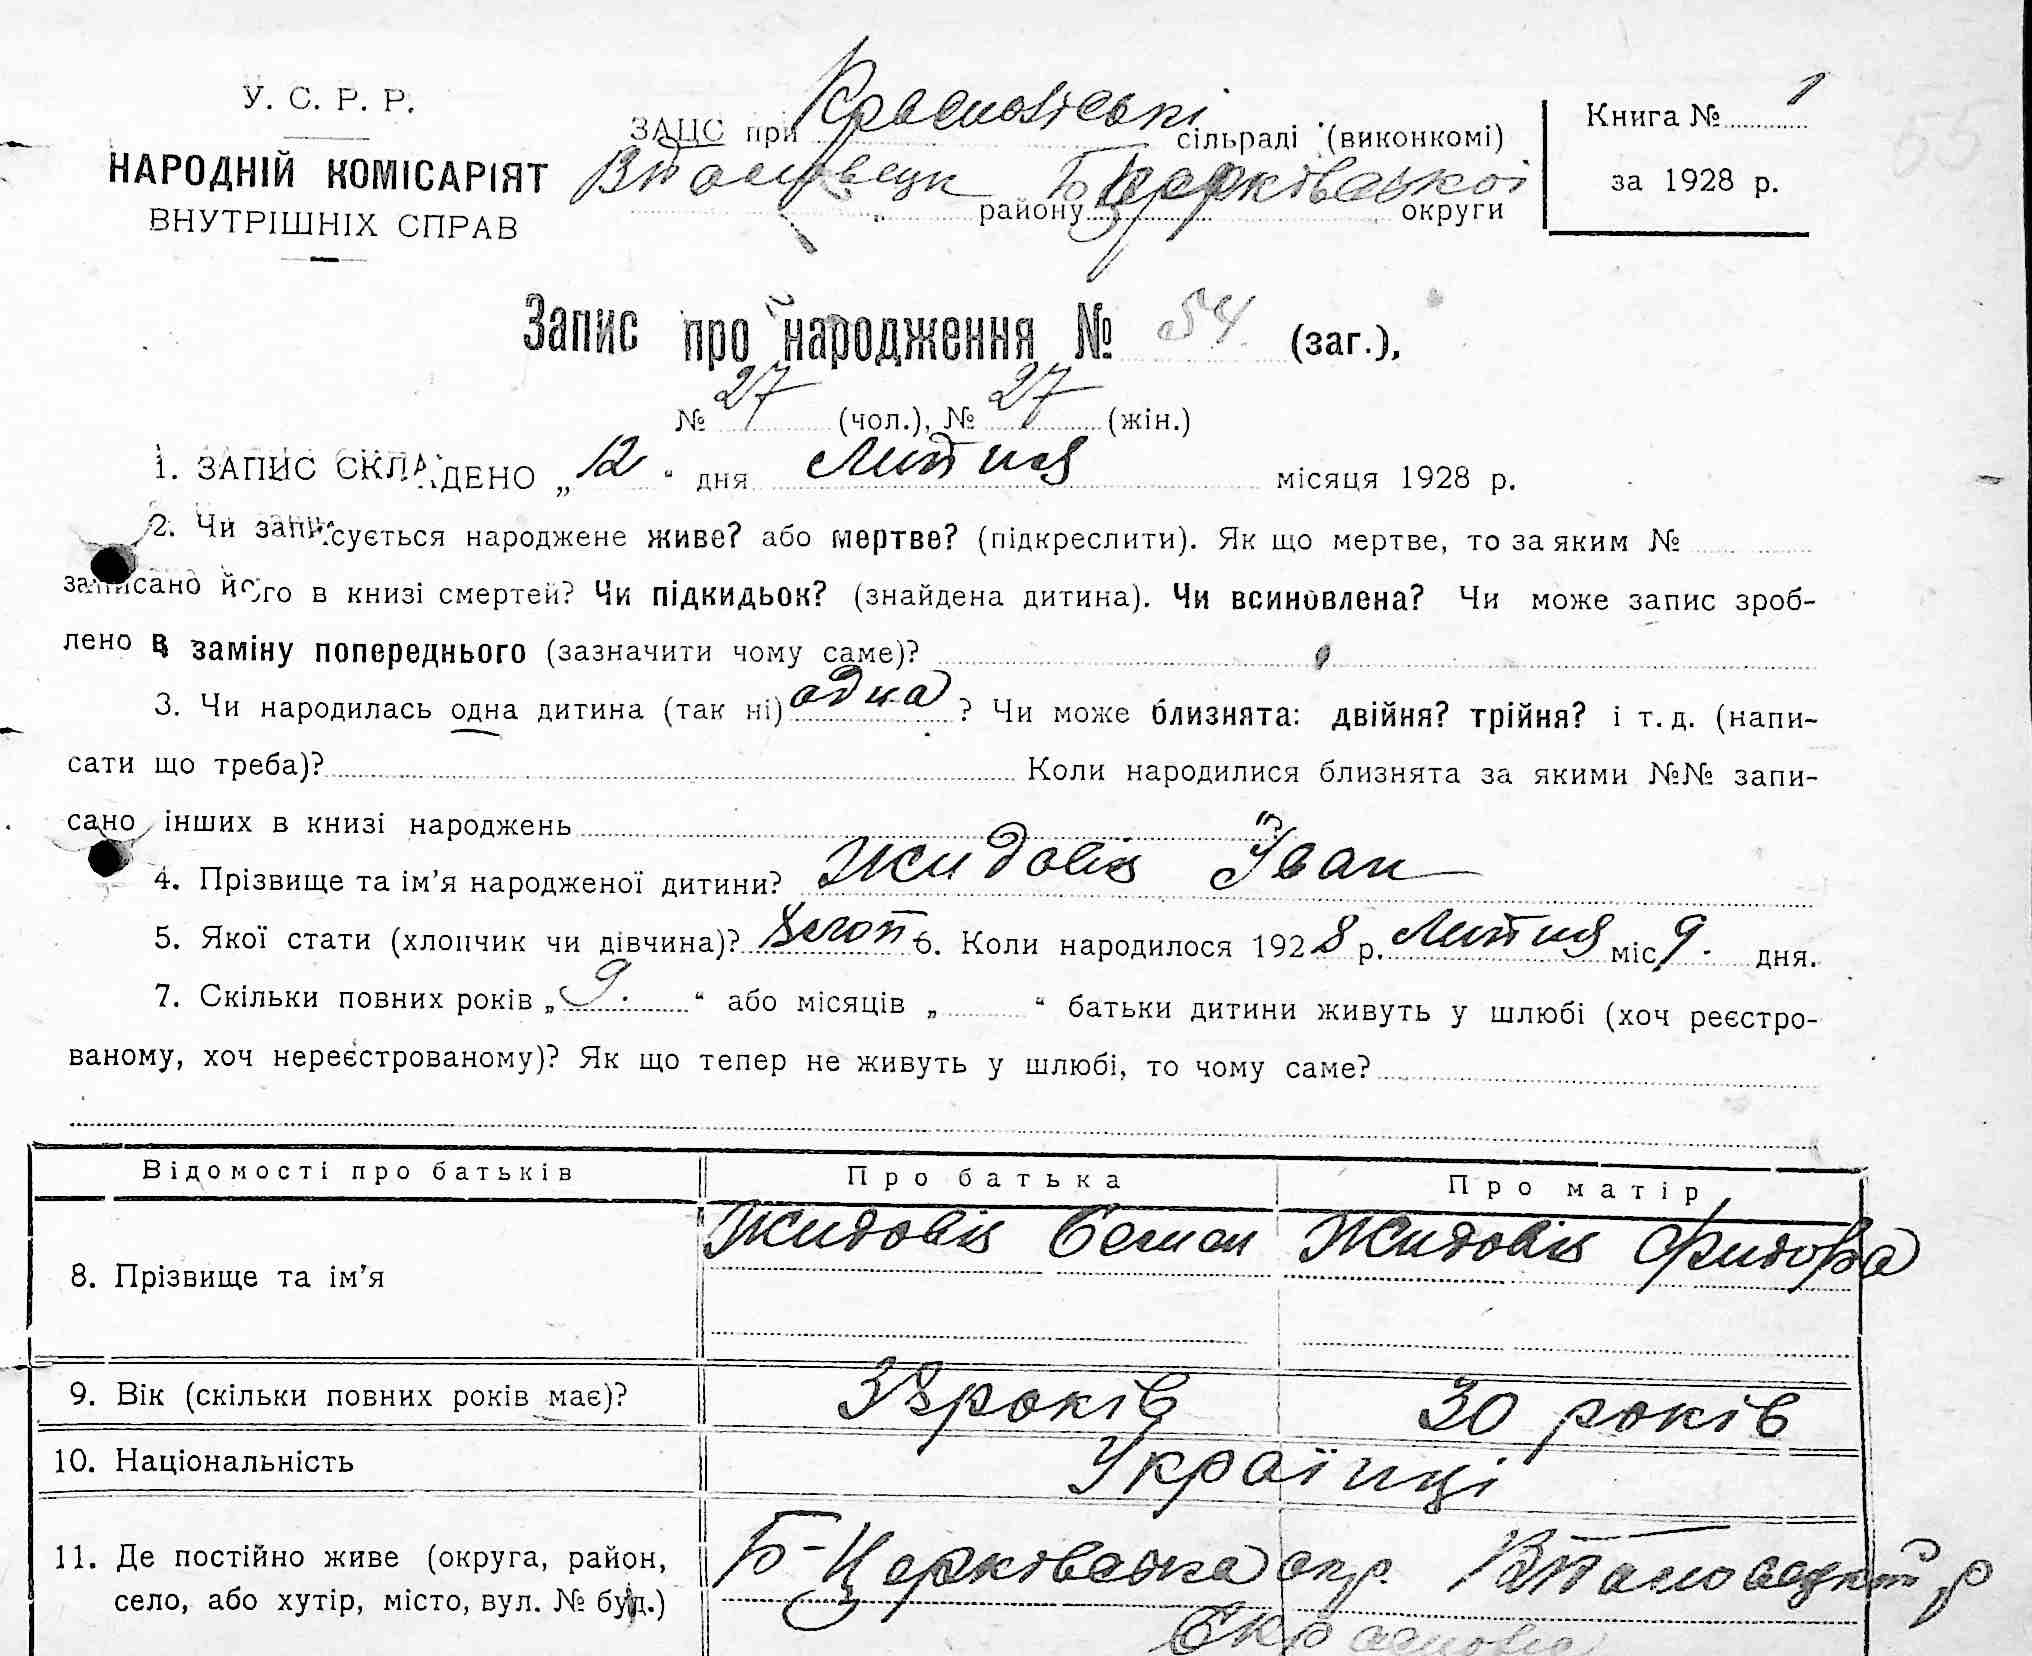 У. С. Р. Р.
НАРОДНІЙ КОМІСАРІЯТ
ВНУТРІШНІХ СПРАВ
ЗАЦС при Красноліські сільраді (виконкомі)
району Б Церківської округи
Книга № 1
за 1928 р.
55
Запис про народження № 54 (заг.),
№ 27 (чол.), № 27 (жін.)
1. ЗАПИС СКЛАДЕНО „12“ дня Лютня місяця 1928 р.
2. Чи записується народжене живе? або мертве? (підкреслити). Як що мертве, то за яким №
записано його в книзі смертей? Чи підкидьок? (знайдена дитина). Чи всиновлена? Чи може запис зроб-
лено в заміну попереднього (зазначити чому саме)?
3. Чи народилась одна дитина (так ні) одна ? Чи може близнята: двійня? трійня? і т. д. (напи-
сати що треба)? Коли народилися близнята за якими №№ запи-
сано інших в книзі народжень ?
4. Прізвище та ім'я народженої дитини? Жидовіц Іван
5. Якої стати (хлопчик чи дівчина)? Хлоп 6. Коли народилося 1928 р. Лютня міс 9. дня.
7. Скільки повних років „9.“ або місяців „ “ батьки дитини живуть у шлюбі (хоч реєстро-
ваному, хоч нереєстрованому)? Як що тепер не живуть у шлюбі, то чому саме?
Відомості про батьків Про батька Про матір
8. Прізвище та ім'я Жидовіц Семен Жидовіц Фидора
9. Вік (скільки повних років має)? 38 років 30 років
10. Національність Українці
11. Де постійно живе (округа, район, Б-Церківська окр.
село, або хутір, місто, вул. № буд.)